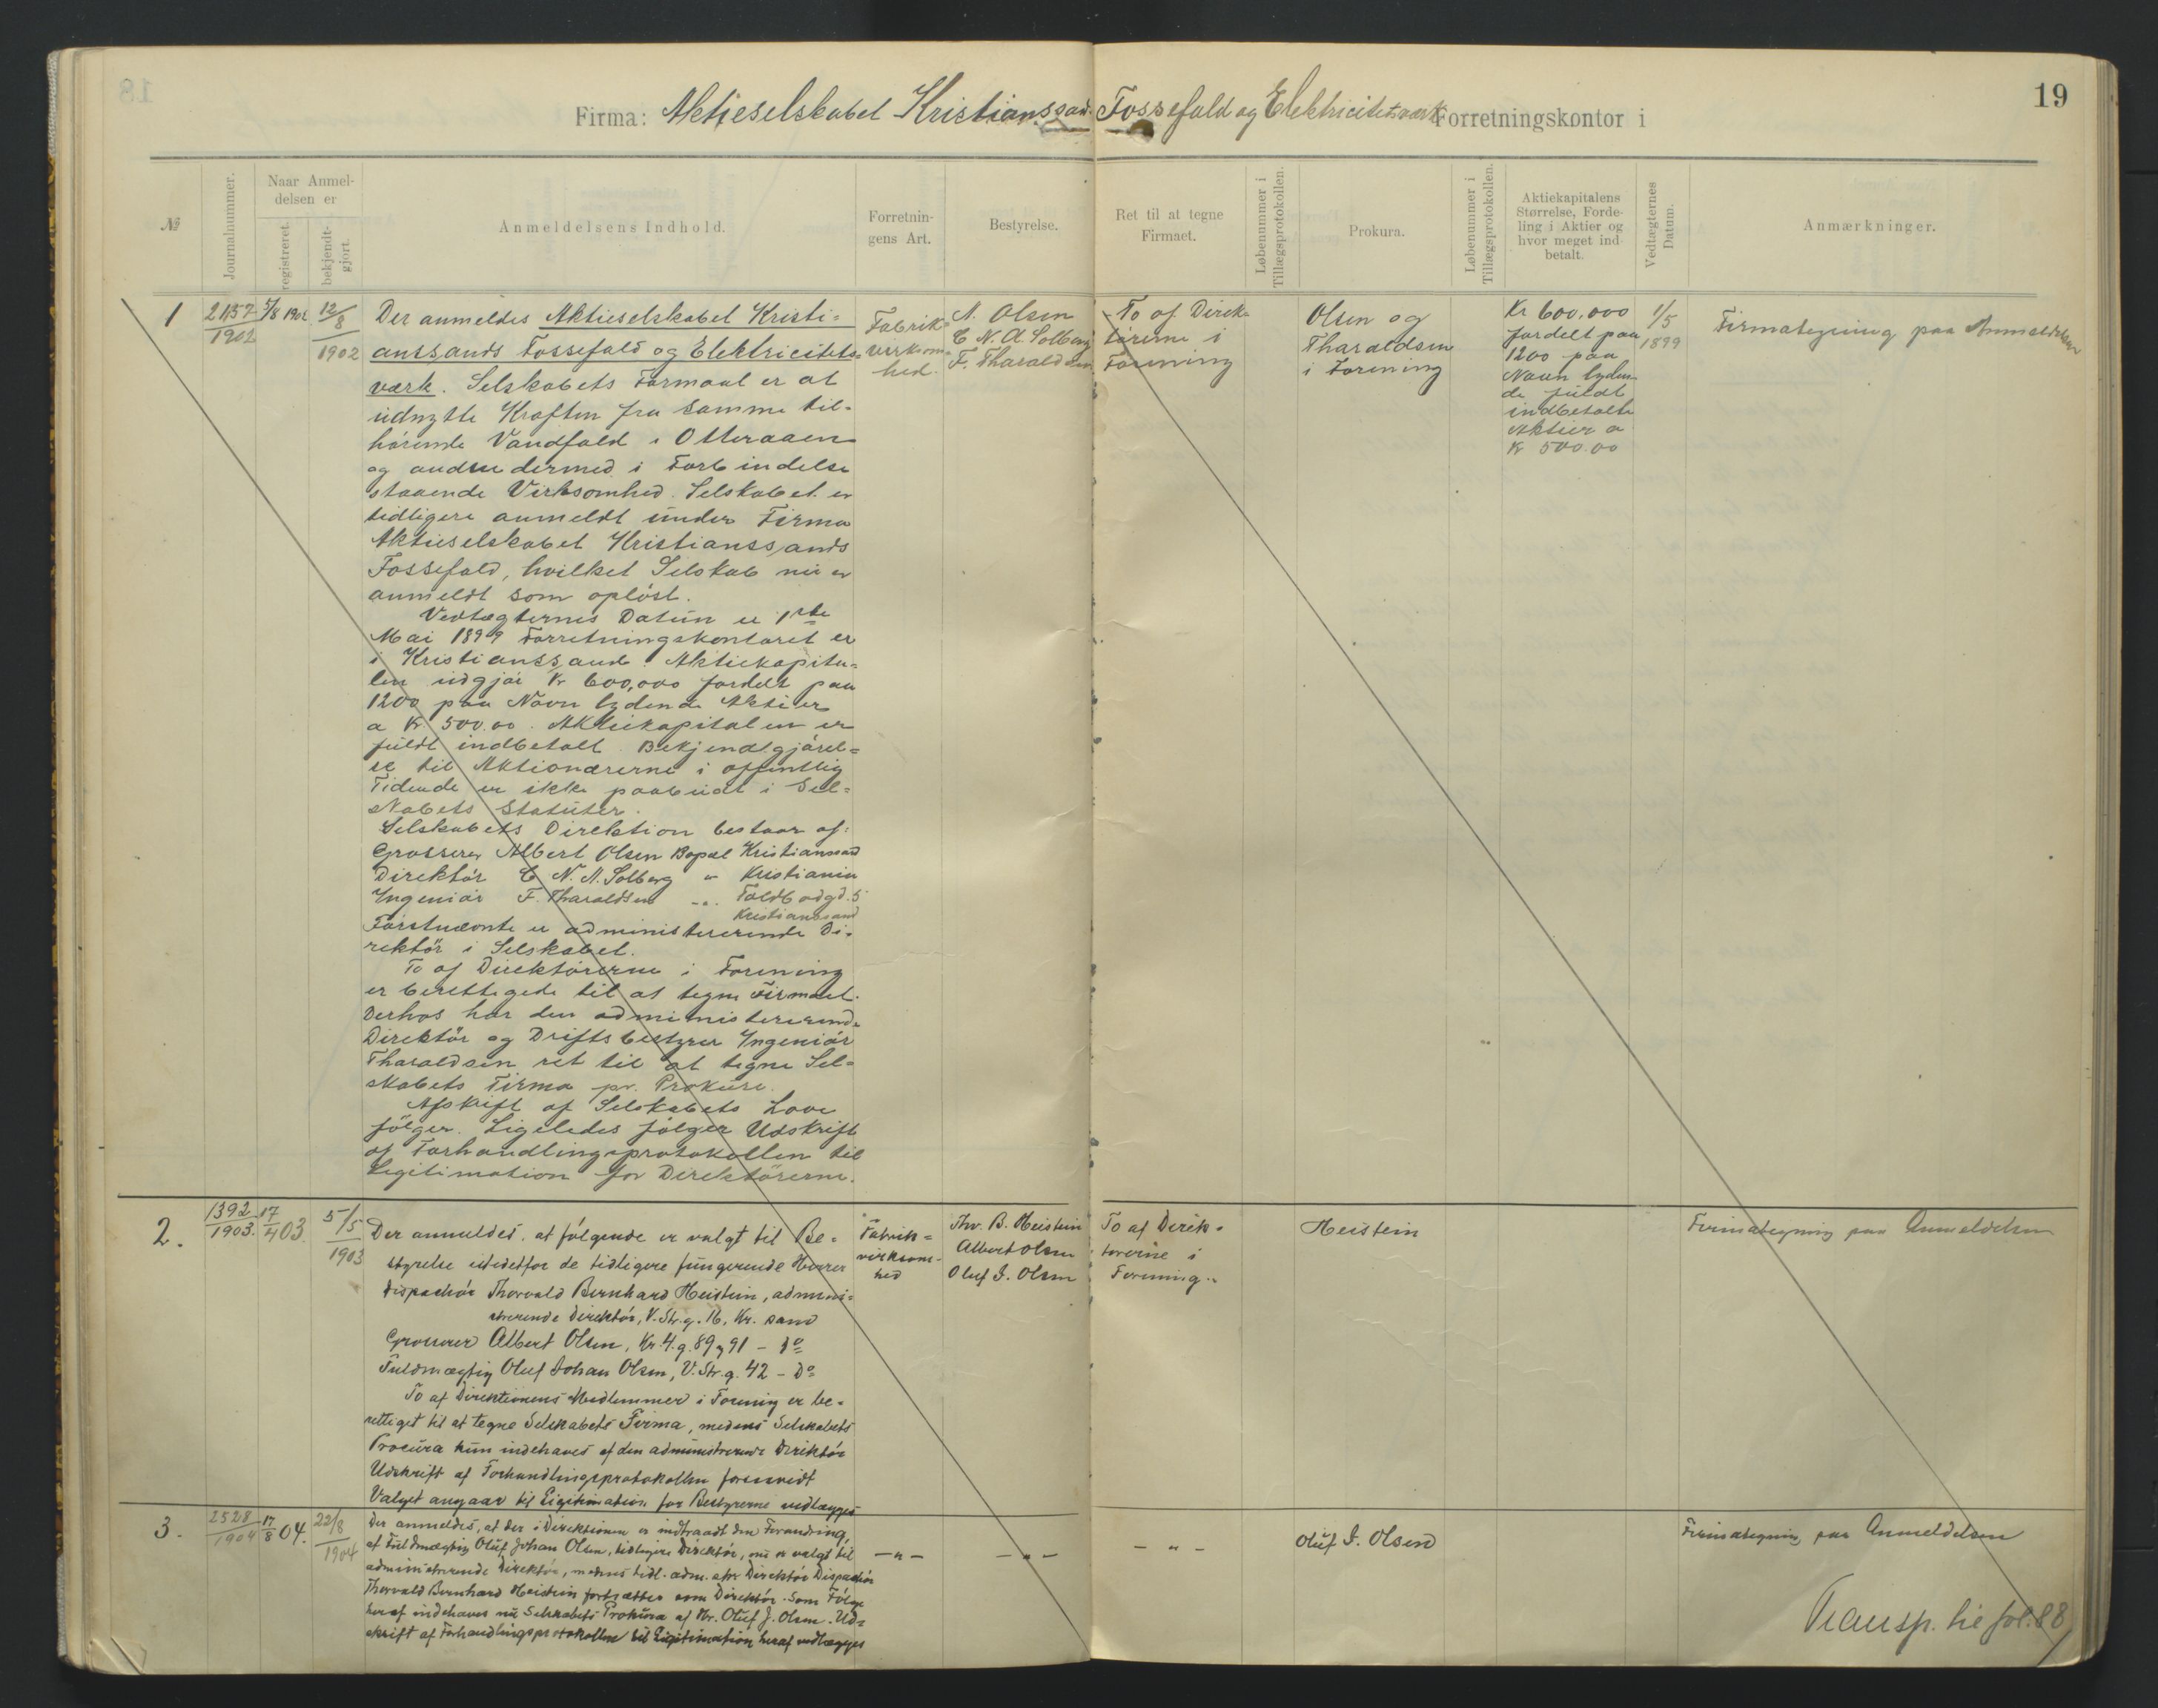 19
Firma: Aktieselskabet Kristianssands Fossefald og Elektricitetsværk Forretningskontor i
№
Journalnummer.
Naar Anmel-
delsen er
registreret.
bekjendt-
gjort.
Anmeldelsens Indhold.
Forretnin-
gens Art.
Bestyrelse.
Ret til at tegne
Firmaet.
Løbenummer i
Tillægsprotokollen.
Prokura.
Løbenummer i
Tillægsprotokollen.
Aktiekapitalens
Størrelse, Forde-
ling i Aktier og
hvor meget ind-
betalt.
Vedtægternes
Datum.
Anmærkninger.
1
2157/1902
5/8 1902
12/8
1902
Der anmeldes Aktieselskabet Kristi=
anssands Fossefald og Elektricitets=
værk. Selskabets Formaal er at
udnytte Kraften fra samme til-
hørende Vandfald i Otteraaen
og anden dermed i Forbindelse
staaende Virksomhed. Selskabet er
tidligere anmeldt under Firma
Aktieselskabet Kristianssands
Fossefald, hvilket Selskab nu er
anmeldt som opløst.
Vedtægternes Datum er 1ste
Mai 1899 Forretningskontoret er
i Kristianssand. Aktiekapita=
len udgjør Kr 600,000 fordelt paa
1200 paa Navn lydende Aktier
a Kr 500.00. Aktiekapitalen er
fuldt indbetalt. Bekjendtgjørel=
se til Aktionærerne i offentlig
Tidende er ikke paabudt i Sel=
skabets Statuter.
Selskabets Direktion bestaar af:
Grosserer Albert Olsen Bopæl Kristianssand
Direktør C N. A. Solberg " Kristiania
Ingeniør F. Tharaldsen -"- Toldbodgd. 5
Kristianssand
Førstnævnte er administrerende Di-
rektør i Selskabet.
To af Direktørerne i Forening
er berettigede til at tegne Firmaet.
Derhos har den administrerende
Direktør og Driftsbestyrer Ingeniør
Tharaldsen ret til at tegne Sel=
skabets Firma pr. Prokura.
Afskrift af Selskabets Love
følger. Ligeledes følger Udskrift
af Forhandlingsprotokollen til
Legitimation for Direktørerne.
Fabrik=
virksom=
hed.
A. Olsen
C N. A. Solberg
F. Tharaldsen
To af Direk-
tørerne i
Forening
Olsen og
Tharaldsen
i Forening
Kr 600.000
fordelt paa
1200 paa
Navn lyden-
de fuldt
indbetalte
Aktier a
Kr 500.00
1/5
1899
Firmategning paa Anmeldelsen
2.
1392/1903.
17/4 03
5/5
1903
Der anmeldes, at følgende er valgt til Be=
styrelse istedetfor de tidligere fungerende Herrer
Dispachør Thorvald Bernhard Heistein, admini=
strerende Direktør, V. Str. g. 16, Kr. sand
Grosserer Albert Olsen, Kr. 4. g. 89 og 91 – Do
Fuldmægtig Oluf Johan Olsen, V. Str. g. 42 – Do
To af Direktionens Medlemmer i Forening er be-
rettiget til at tegne Selskabets Firma, medens Selskabets
Procura kun indehaves af den administrerende Direktør
Udskrift af Forhandlingsprotokollen forsaavidt
Valget angaar til Legitimation for Bestyrerne vedlægges
Fabrik=
virksom-
hed
Thv. B. Heistein
Albert Olsen
Oluf J. Olsen
To af Direk-
tørerne i
Forening.
Heistein
Firmategning paa Anmeldelsen
3.
2528/1904
17/8 04.
22/8
1904
Der anmeldes, at der i Direktionen er indtraadt den Forandring,
at Fuldmægtig Oluf Johan Olsen, tidligere Direktør, nu er valgt til
administrerende Direktør, medens tidl. adm. Direktør Dispachør
Thorvald Bernhard Heistein fortsætter som Direktør. Som Følge
heraf indehaves nu Selskabets Prokura af Hr. Oluf J. Olsen. Ud=
skrift af Forhandlingsprotokollen til Legitimation heraf vedlægges
— " —
— " —
— " —
Oluf J. Olsen
Firmategning paa Anmeldelsen
Transp. til fol. 88